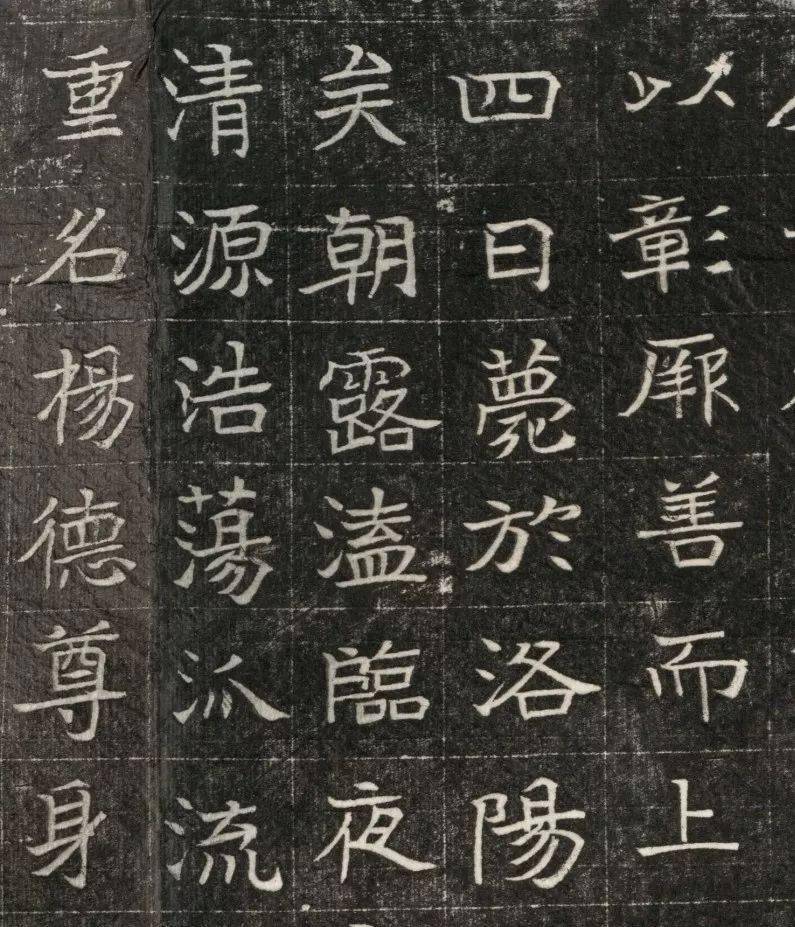 以彰厥善而上
四日薨於洛陽
矣朝露溘臨夜
清源浩蕩派流
重名楊德尊身